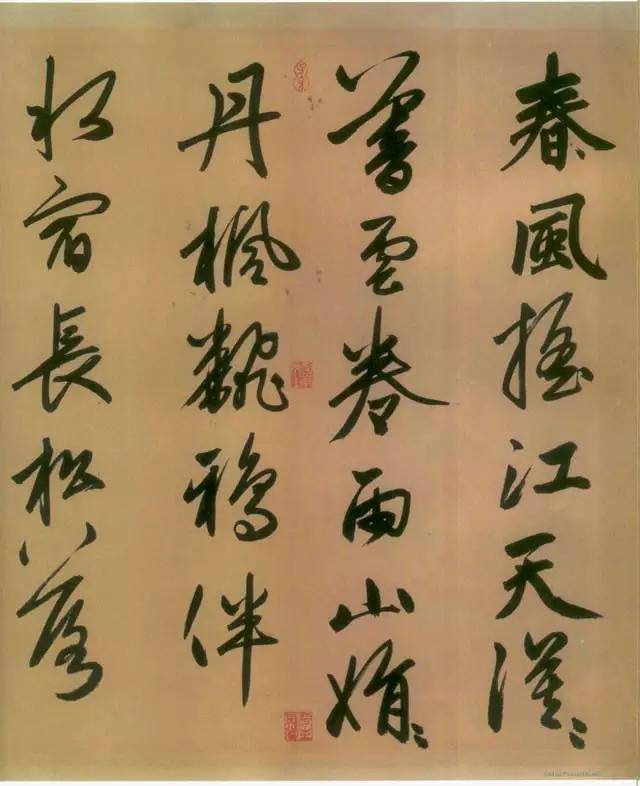 春風搖江天漠々
暮雲卷雨山娟々
丹楓飜鴉伴
水宿長松落